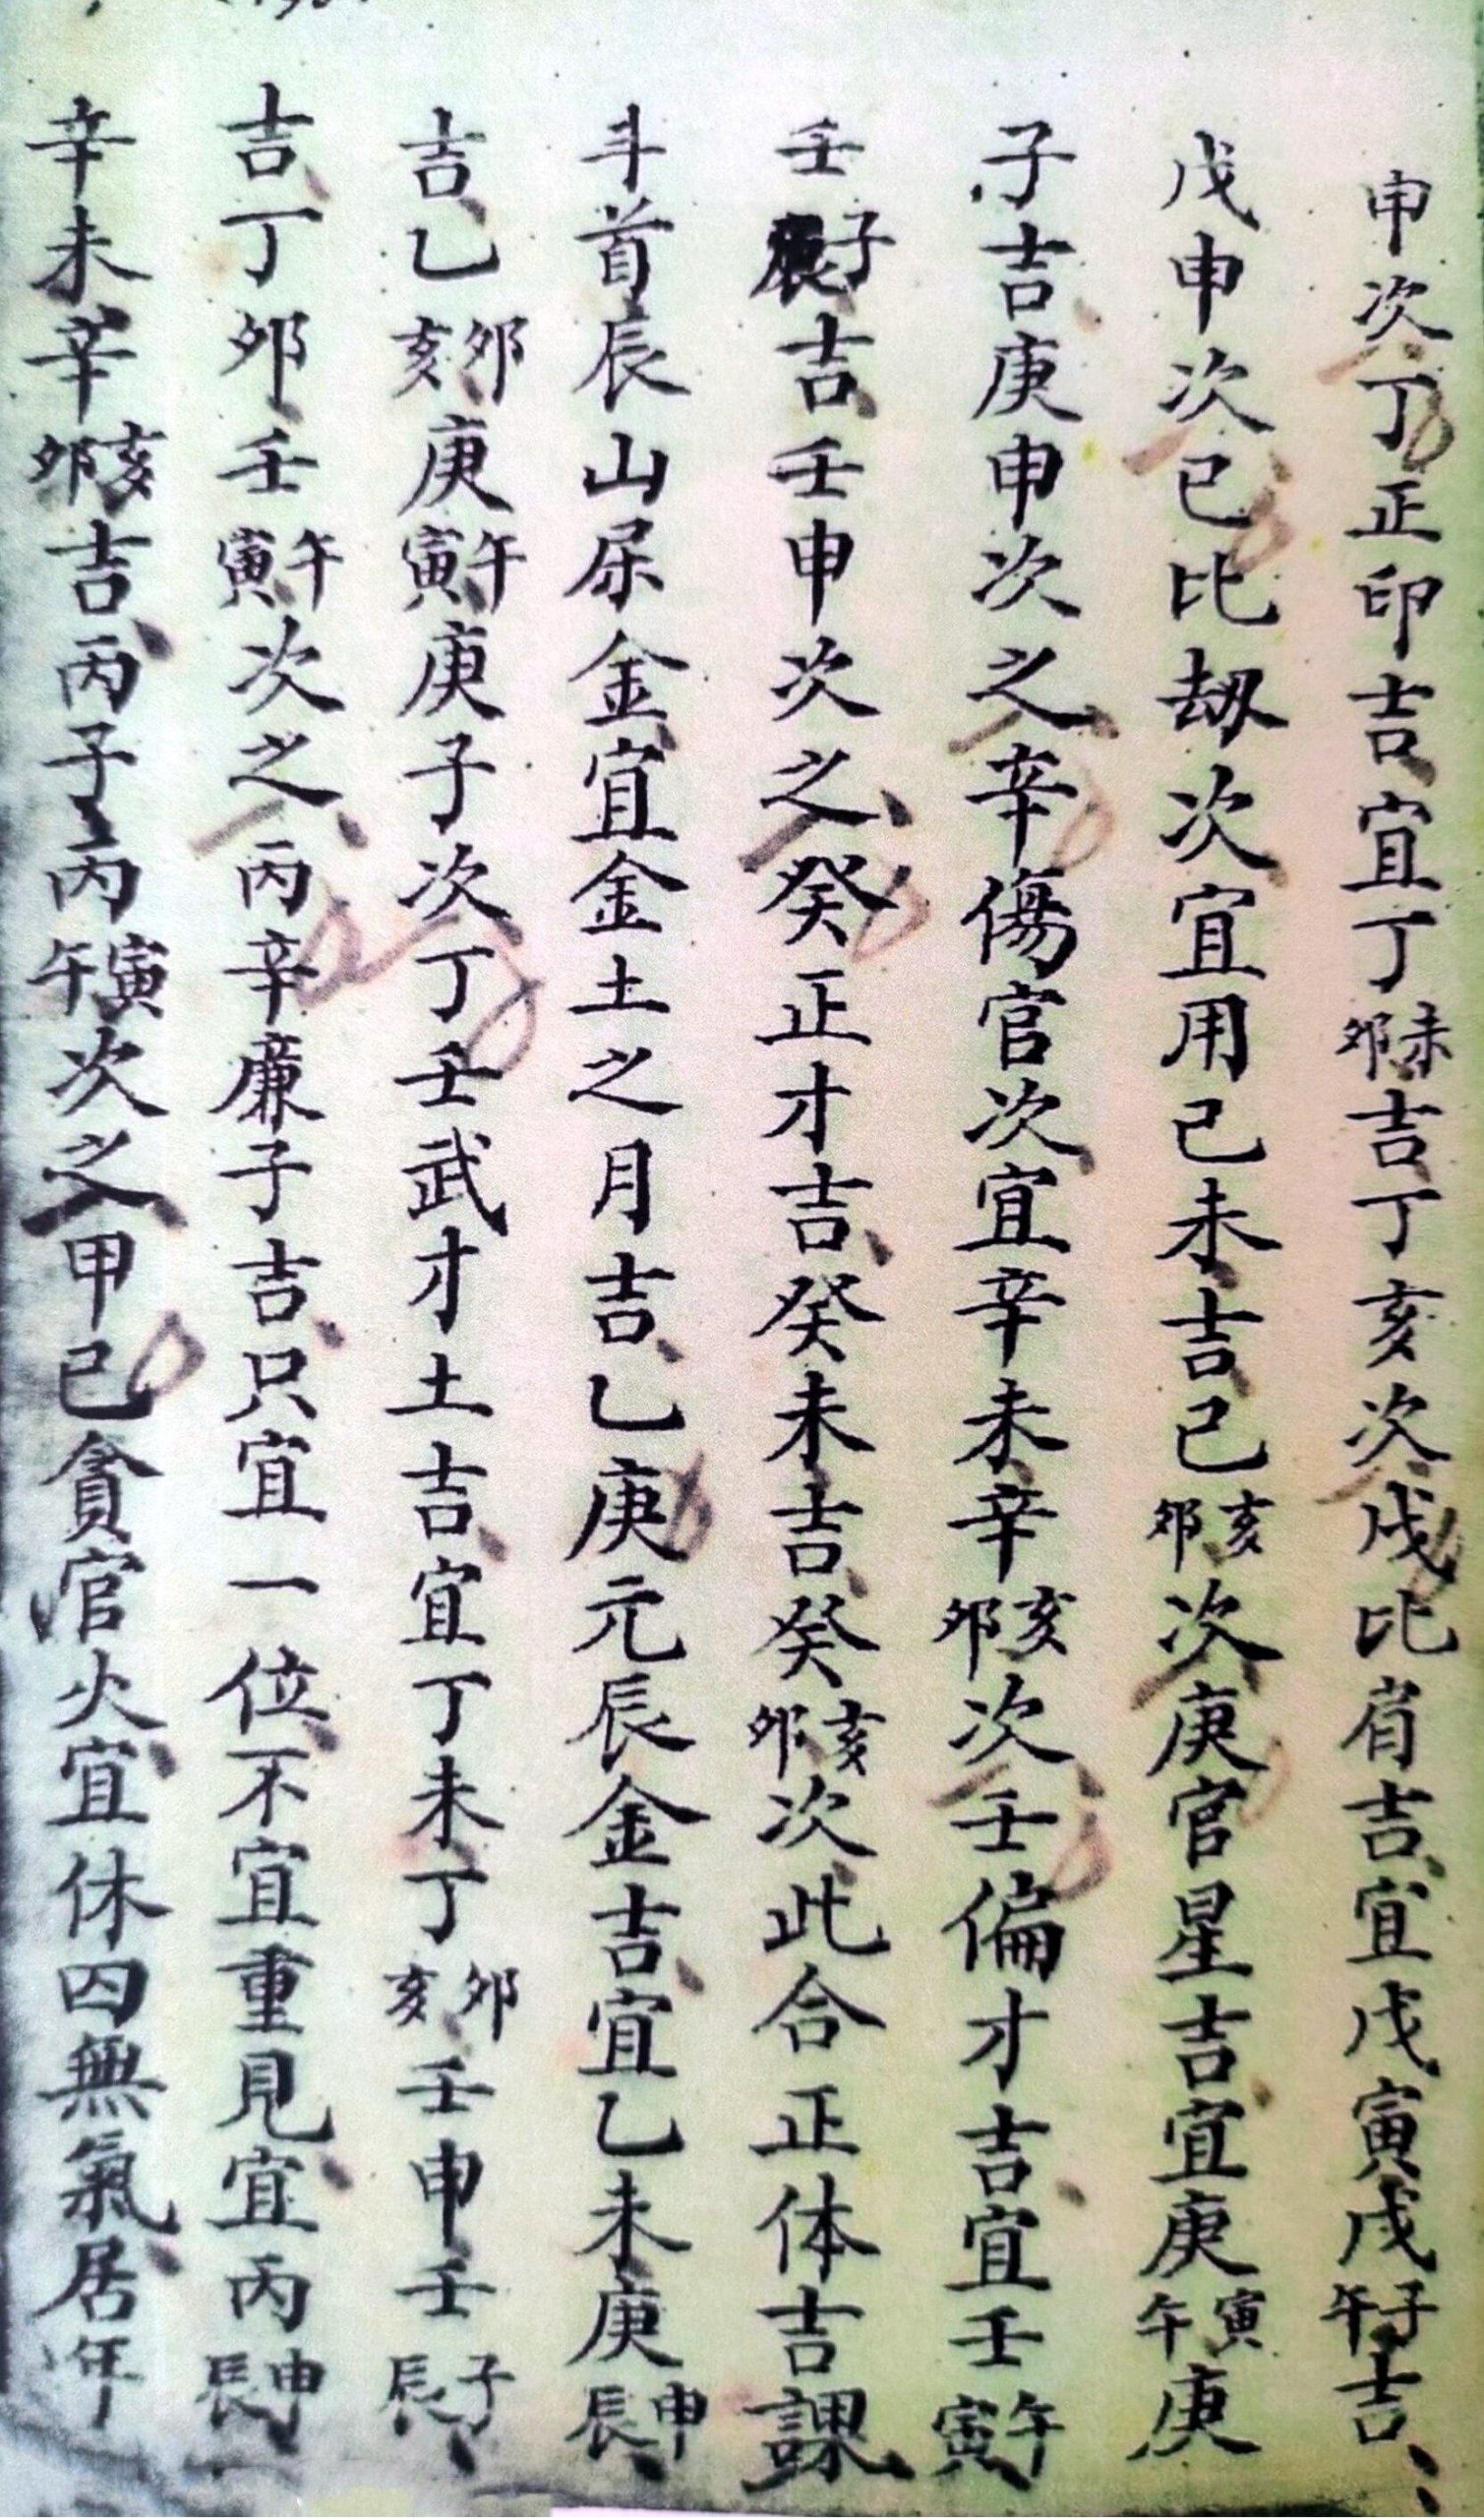 申次丁正印吉宜丁未卯吉丁亥次戊比肩吉宜戊寅戊子午吉
戊申次己比劫次宜用己未吉己亥卯次庚官星吉宜庚寅午庚
子吉庚申次之辛傷官次宜辛未辛亥卯次壬偏才吉宜壬午寅
壬子辰吉壬申次之癸正才吉癸未吉癸亥卯次此合正体吉課
斗首辰山屬金宜金土之月吉乙庚元辰金吉宜乙未庚申辰
吉乙卯亥庚午寅庚子次丁壬武才土吉宜丁未丁卯亥壬申壬子辰
吉丁卯壬午寅次之丙辛廉子吉只宜一位不宜重見宜丙申辰
辛未辛亥卯吉丙子丙寅午次之甲己貪官火宜休囚無氣居年